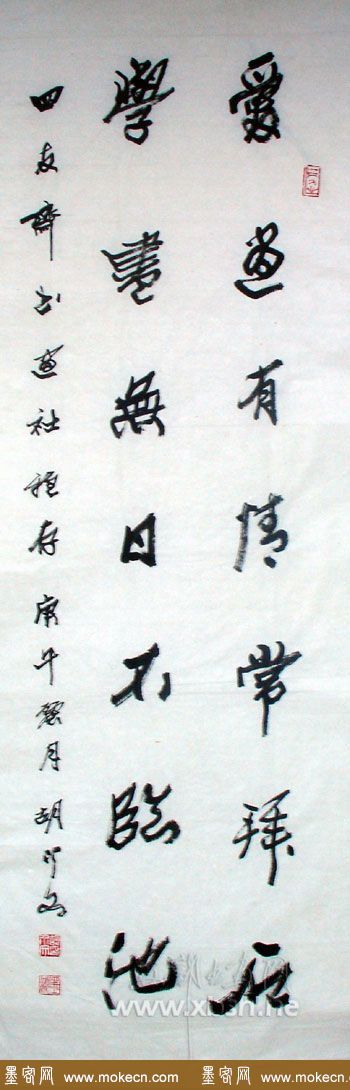 愛畫有情常拜石
學書無日不臨池
四友齋書畫社種存 庚午臘月 胡
www.xhsh.ne
墨客网 www.mokecn.com 墨客网 www.mokecn.com